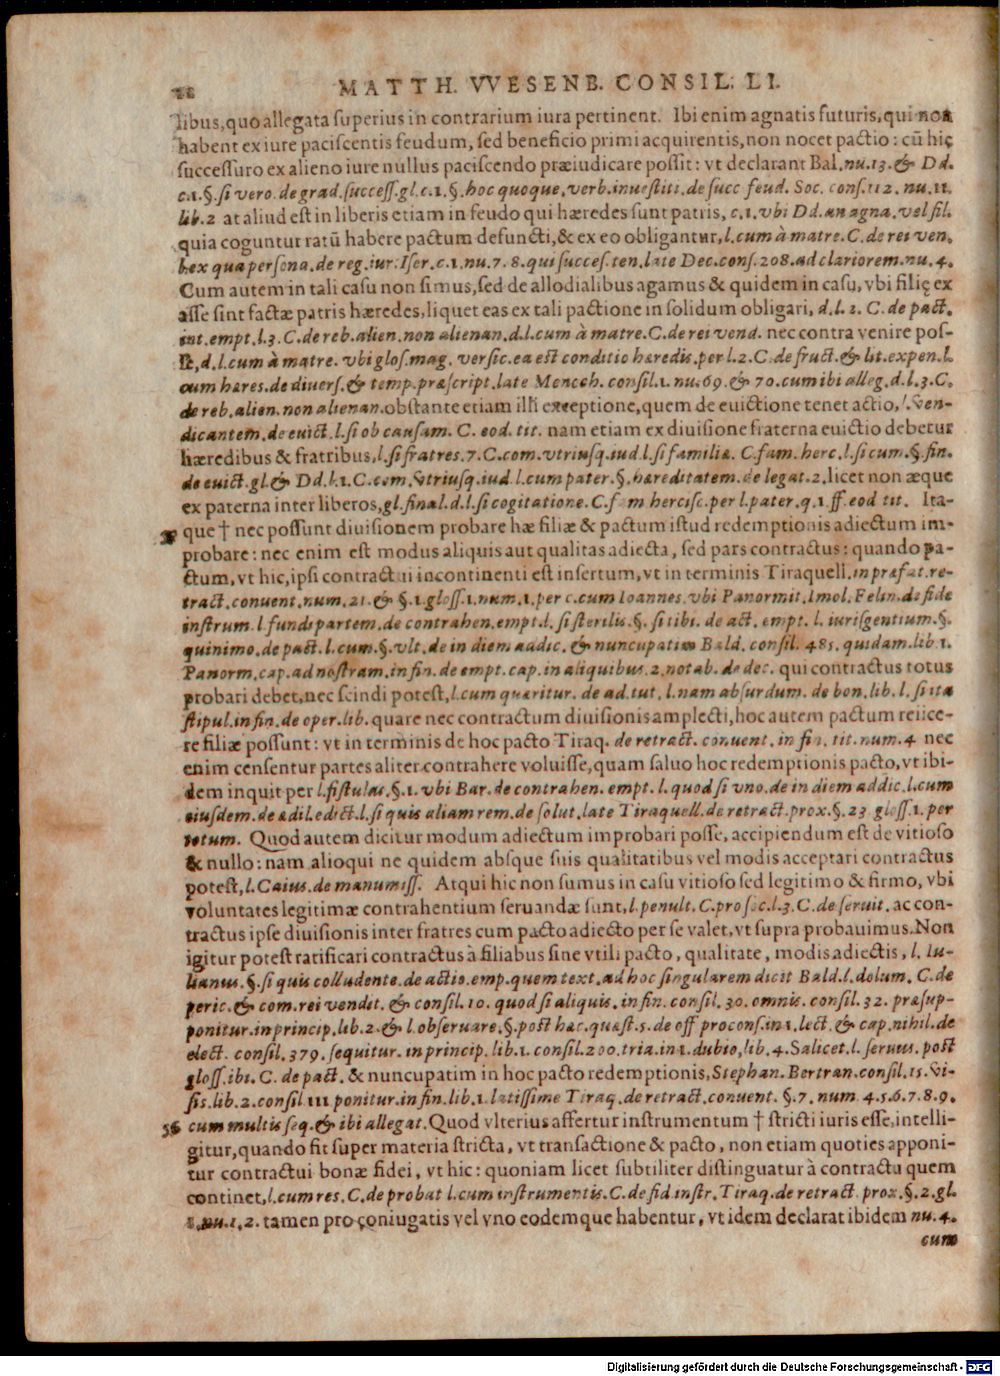 MATTH. VVESENB. CONSIL. LI.
libus, quo allegata superius in contrarium iura pertinent. Ibi enim agnatis futuris, qui non
habent ex iure paciscentis feudum, sed beneficio primi acquirentis, non nocet pactio: cũ hic
successuro ex alieno iure nullus paciscendo præiudicare possit: vt declarant Bal. nu. 13. & Dd.
c. 1. §. si vero. de grad. success. gl. c. 1. §. hoc quoque. verb. inuestiti. de succ feud. Soc. cons. 112. nu. 11.
lib. 2 at aliud est in liberis etiam in feudo qui hæredes sunt patris, c. 1. vbi Dd. an agna. vel fil.
quia coguntur ratũ habere pactum defuncti, & ex eo obligantur, l. cum à matre. C. de rei ven.
l. ex qua persona. de reg. iur. Iser. c. 1. nu. 7. 8. qui succes. ten. late Dec. cons. 208. ad clariorem. nu. 4.
Cum autem in tali casu non simus, sed de allodialibus agamus & quidem in casu, vbi filię ex
asse sint factæ patris hæredes, liquet eas ex tali pactione in solidum obligari, d. l. 2. C. de pact.
int. empt. l. 3. C. de reb. alien. non alienan. d. l. cum à matre. C. de rei vend. nec contra venire pos-
se, d. l. cum à matre. vbi glos. mag. versic. ea est conditio hæredis, per l. 2. C. de fruct. & lit. expen. l.
cum hæres. de diuers. & temp. præscript. late Menoch. consil. 1. nu. 69. & 70. cum ibi alleg. d. l. 3. C.
de reb. alien. non alienan. obstante etiam illi exceptione, quem de euictione tenet actio, l. ven-
dicantem. de euict. l. si ob causam. C. eod. tit. nam etiam ex diuisione fraterna euictio debetur
hæredibus & fratribus, l. si fratres. 7. C. com. vtriusq. iud. l. si familiæ. C. fam. herc. l. si cum. §. fin.
de euict. gl. & Dd. l. 1. C. com. vtriusq. iud. l. cum pater. §. hæreditatem. de legat. 2. licet non æque
ex paterna inter liberos, gl. final. d. l. si cogitatione. C. fam hercisc. per l. pater. q. 1. ff. eod tit. Ita-
que † nec possunt diuisionem probare hæ filiæ & pactum istud redemptionis adiectum im-
probare: nec enim est modus aliquis aut qualitas adiecta, sed pars contractus: quando pa-
ctum, vt hic, ipsi contractui incontinenti est insertum, vt in terminis Tiraquell. in præfat. re-
tract. conuent. num. 21. & §. 1. gloss. 1. num. 1. per c. cum Ioannes. vbi Panormit. Imol. Felin. de fide
instrum. l fundi partem. de contrahen. empt. l. si sterilis. §. si tibi. de act. empt. l. iurisgentium. §.
quinimo. de pact. l. cum. §. vlt. de in diem addic. & nuncupatim Bald. consil. 485. quidam. lib. 1.
Panorm. cap. ad nostram. in fin. de empt. cap. in aliquibus. 2. notab. de dec. qui contractus totus
probari debet, nec scindi potest, l. cum quæritur. de ad. tut. l. nam absurdum. de bon. lib. l. si ita
stipul. in fin. de oper. lib. quare nec contractum diuisionis amplecti, hoc autem pactum reiice-
re filiæ possunt: vt in terminis de hoc pacto Tiraq. de retract. conuent. in fin. tit. num. 4 nec
enim censentur partes aliter contrahere voluisse, quam saluo hoc redemptionis pacto, vt ibi-
dem inquit per l. fistulas. §. 1. vbi Bar. de contrahen. empt. l. quod si vno. de in diem addic. l. cum
eiusdem. de ædil. edict. l. si quis aliam rem. de solut. late Tiraquell. de retract. prox. §. 23 gloss. 1. per
totum. Quod autem dicitur modum adiectum improbari posse, accipiendum est de vitioso
& nullo: nam alioqui ne quidem absque suis qualitatibus vel modis acceptari contractus
potest, l. Caius. de manumiss. Atqui hic non sumus in casu vitioso sed legitimo & firmo, vbi
voluntates legitimæ contrahentium seruandæ sunt, l. penult. C. pro soc. l. 3. C. de seruit. ac con-
tractus ipse diuisionis inter fratres cum pacto adiecto per se valet, vt supra probauimus. Non
igitur potest ratificari contractus à filiabus sine vtili pacto, qualitate, modis adiectis, l. Iu-
lianus. §. si quis colludente. de actio. emp. quem text. ad hoc singularem dicit Bald. l. dolum. C. de
peric. & com. rei vendit. & consil. 10. quod si aliquis. in fin. consil. 30. omnis. consil. 32. præsup-
ponitur. in princip. lib. 2. & l. obseruare. §. post hæc. quæst. 5. de off procons. in 1. lect. & cap. nihil. de
elect. consil. 379. sequitur. in princip. lib. 1. consil. 200. tria. in 1. dubio, lib. 4. Salicet. l. seruus. post
gloss. ibi. C. de pact. & nuncupatim in hoc pacto redemptionis, Stephan. Bertran. consil. 15. vi-
sis. lib. 2. consil 111. ponitur. in fin. lib. 1. latissime Tiraq. de retract. conuent. §. 7. num. 4. 5. 6. 7. 8. 9.
36 cum multis seq. & ibi allegat. Quod vlterius affertur instrumentum † stricti iuris esse, intelli-
gitur, quando fit super materia stricta, vt transactione & pacto, non etiam quoties apponi-
tur contractui bonæ fidei, vt hic: quoniam licet subtiliter distinguatur à contractu quem
continet, l. cum res. C. de probat l. cum instrumentis. C. de fid. instr. Tiraq. de retract. prox. §. 2. gl.
1. nu. 1. 2. tamen pro coniugatis vel vno eodemque habentur, vt idem declarat ibidem nu. 4.
cum
Digitalisierung gefördert durch die Deutsche Forschungsgemeinschaft - DFG